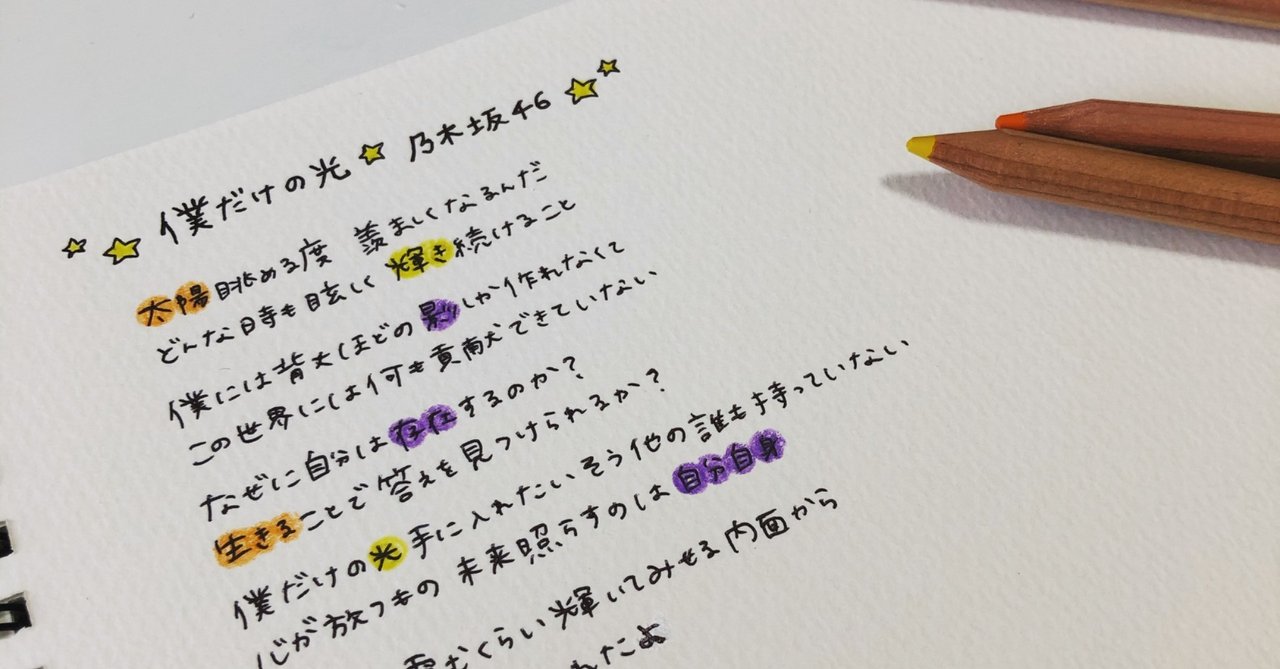 僕だけの光 乃木坂46
太陽眺める度 羨ましくなるんだ
どんな時も眩しく輝き続けること
僕には背丈ほどの影しか作れなくて
この世界には何も貢献できていない
なぜに自分は存在するのか?
生きることで答えを見つけられるか?
僕だけの光手に入れたいそう他の誰も持っていない
心が放つもの 未来照らすのは自分自身
くらい輝いてみせる内面から
れたよ